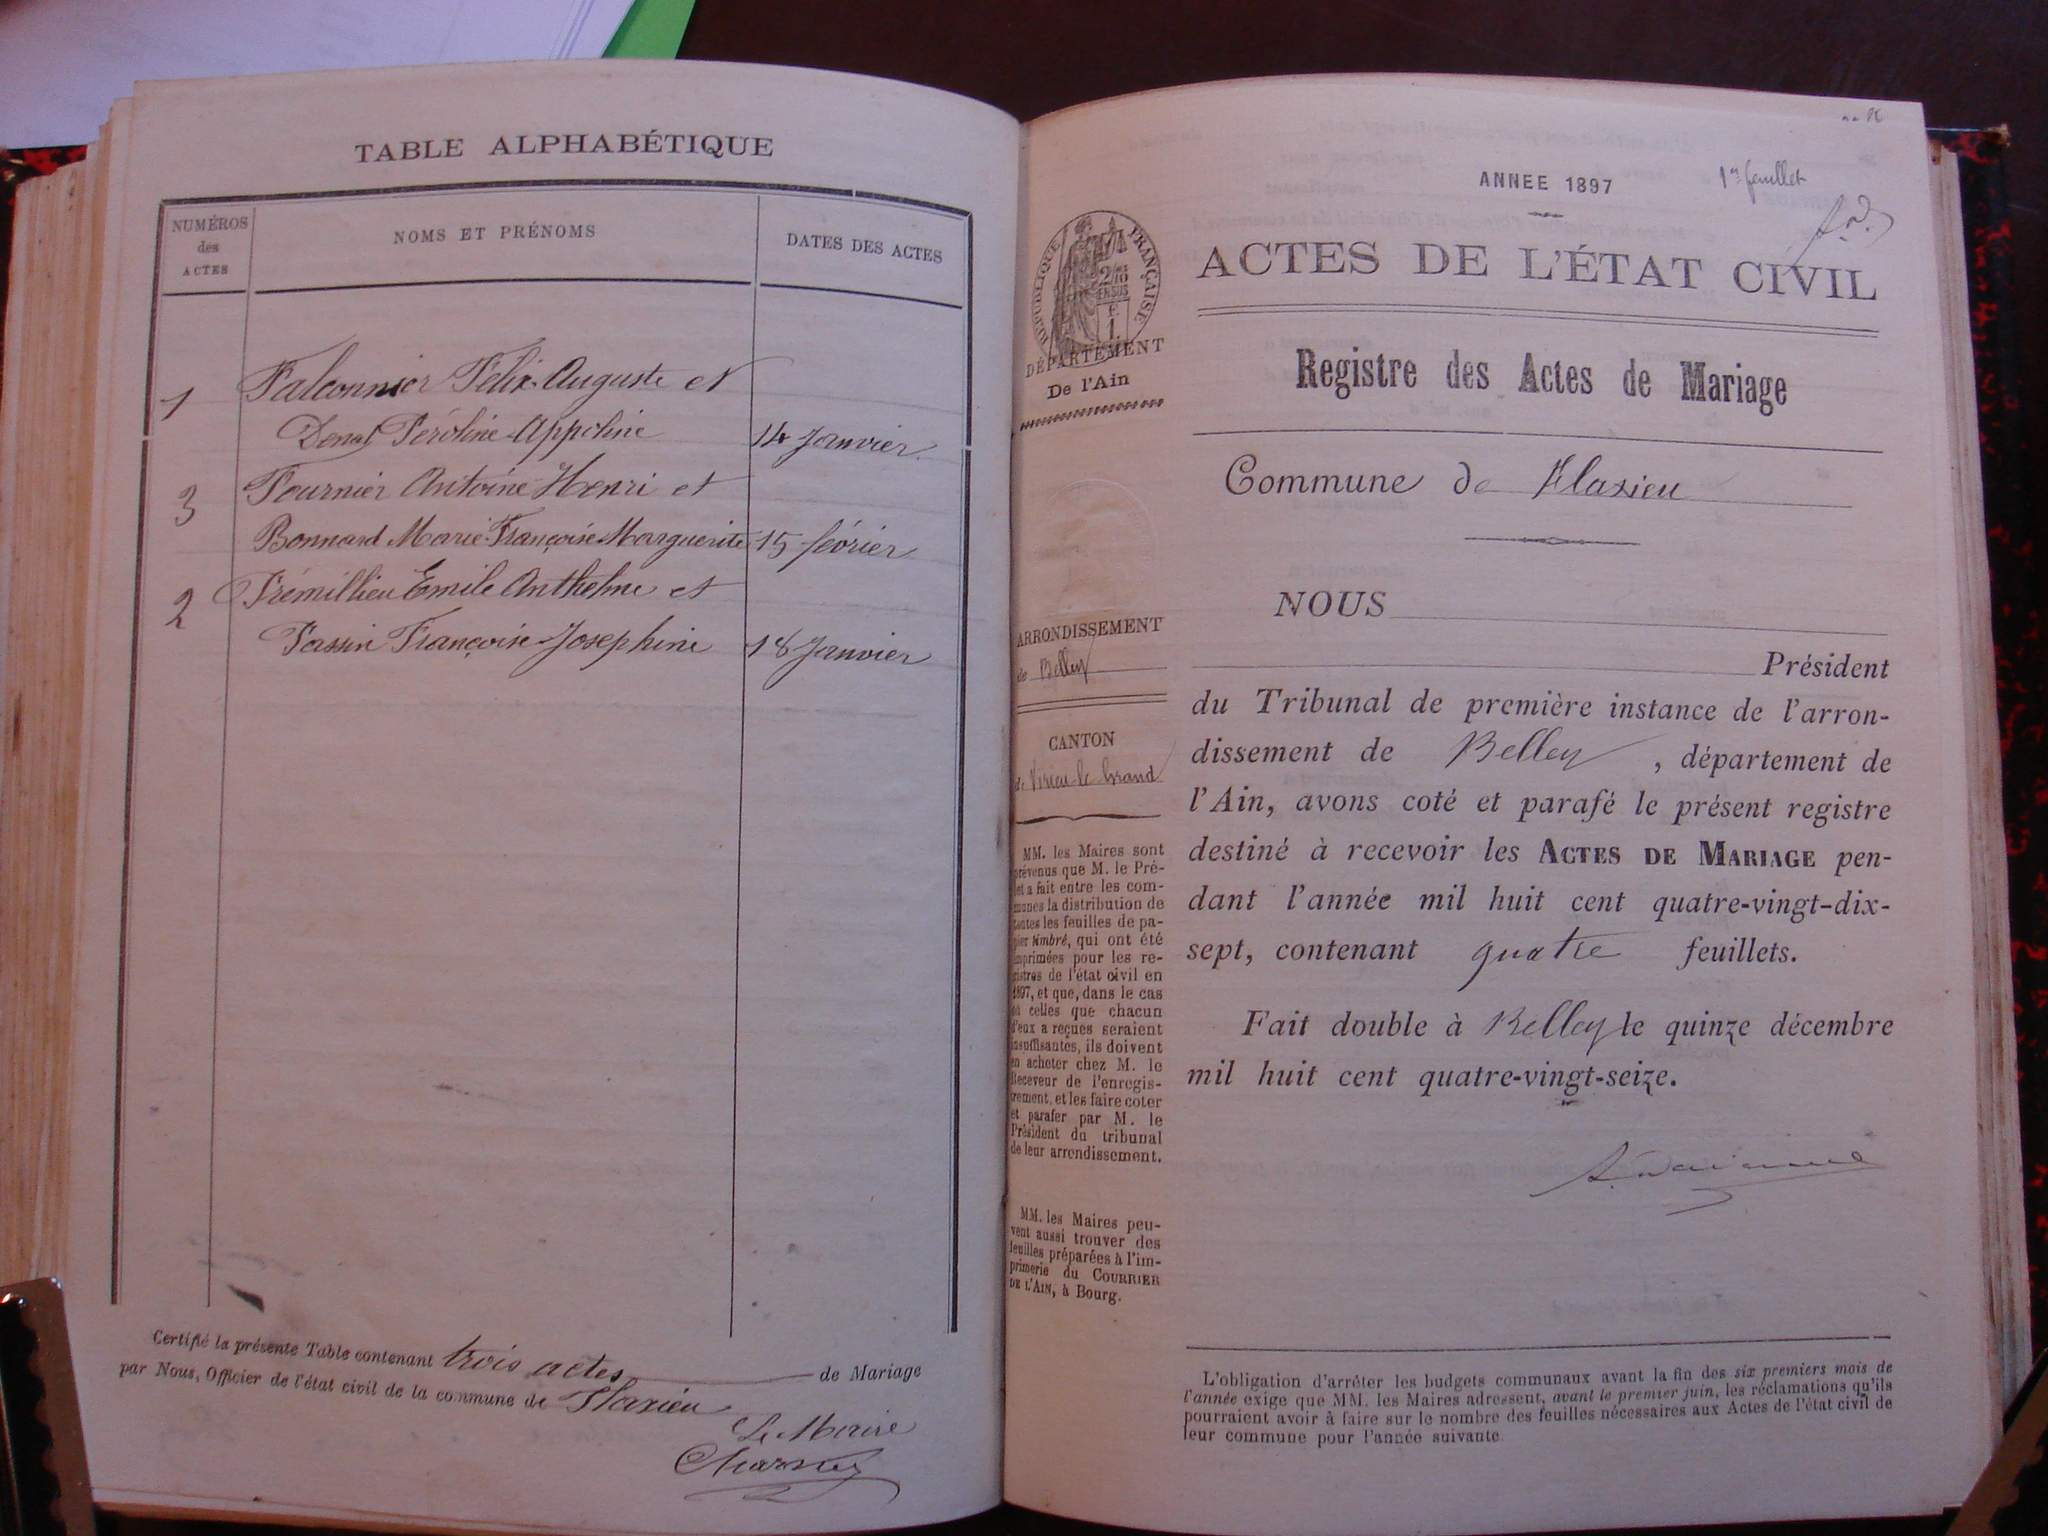 TABLE ALPHABÉTIQUE
NUMÉROS des ACTES
NOMS ET PRÉNOMS
DATES DES ACTES
1 Falconnier Félix-Auguste et
Denat Péroline-Appoline 14 Janvier
3 Fournier Antoine-Henri et
Bonnard Marie-Françoise-Marguerite 15 février
2 Trémillieu Emile Anthelme et
Passin Françoise-Josephine 18 Janvier
Certifié la présente Table contenant trois actes de Mariage
par Nous, Officier de l'état civil de la commune de Flaxieu
Le Maire
ANNEE 1897
1er feuillet
RÉPUBLIQUE FRANÇAISE
ACTES DE L'ÉTAT CIVIL
DÉPARTEMENT
De l'Ain
Registre des Actes de Mariage
Commune de Flaxieu
NOUS
ARRONDISSEMENT
de Belley
CANTON
de Virieu-le-Grand
MM. les Maires sont
prévenus que M. le Pré-
fet a fait entre les com-
munes la distribution de
toutes les feuilles de pa-
pier timbré, qui ont été
imprimées pour les re-
gistres de l'état civil en
1897, et que, dans le cas
où celles que chacun
d'eux a reçues seraient
insuffisantes, ils doivent
en acheter chez M. le
Receveur de l'enregis-
trement, et les faire coter
et parafer par M. le
Président du tribunal
de leur arrondissement.
MM. les Maires peu-
vent aussi trouver des
feuilles préparées à l'im-
primerie du COURRIER
DE L'AIN, à Bourg.
Président
du Tribunal de première instance de l'arron-
dissement de Belley, département de
l'Ain, avons coté et parafé le présent registre
destiné à recevoir les ACTES DE MARIAGE pen-
dant l'année mil huit cent quatre-vingt-dix-
sept, contenant quatre feuillets.
Fait double à Belley le quinze décembre
mil huit cent quatre-vingt-seize.
L'obligation d'arrêter les budgets communaux avant la fin des six premiers mois de
l'année exige que MM. les Maires adressent, avant le premier juin, les réclamations qu'ils
pourraient avoir à faire sur le nombre des feuilles nécessaires aux Actes de l'état civil de
leur commune pour l'année suivante.